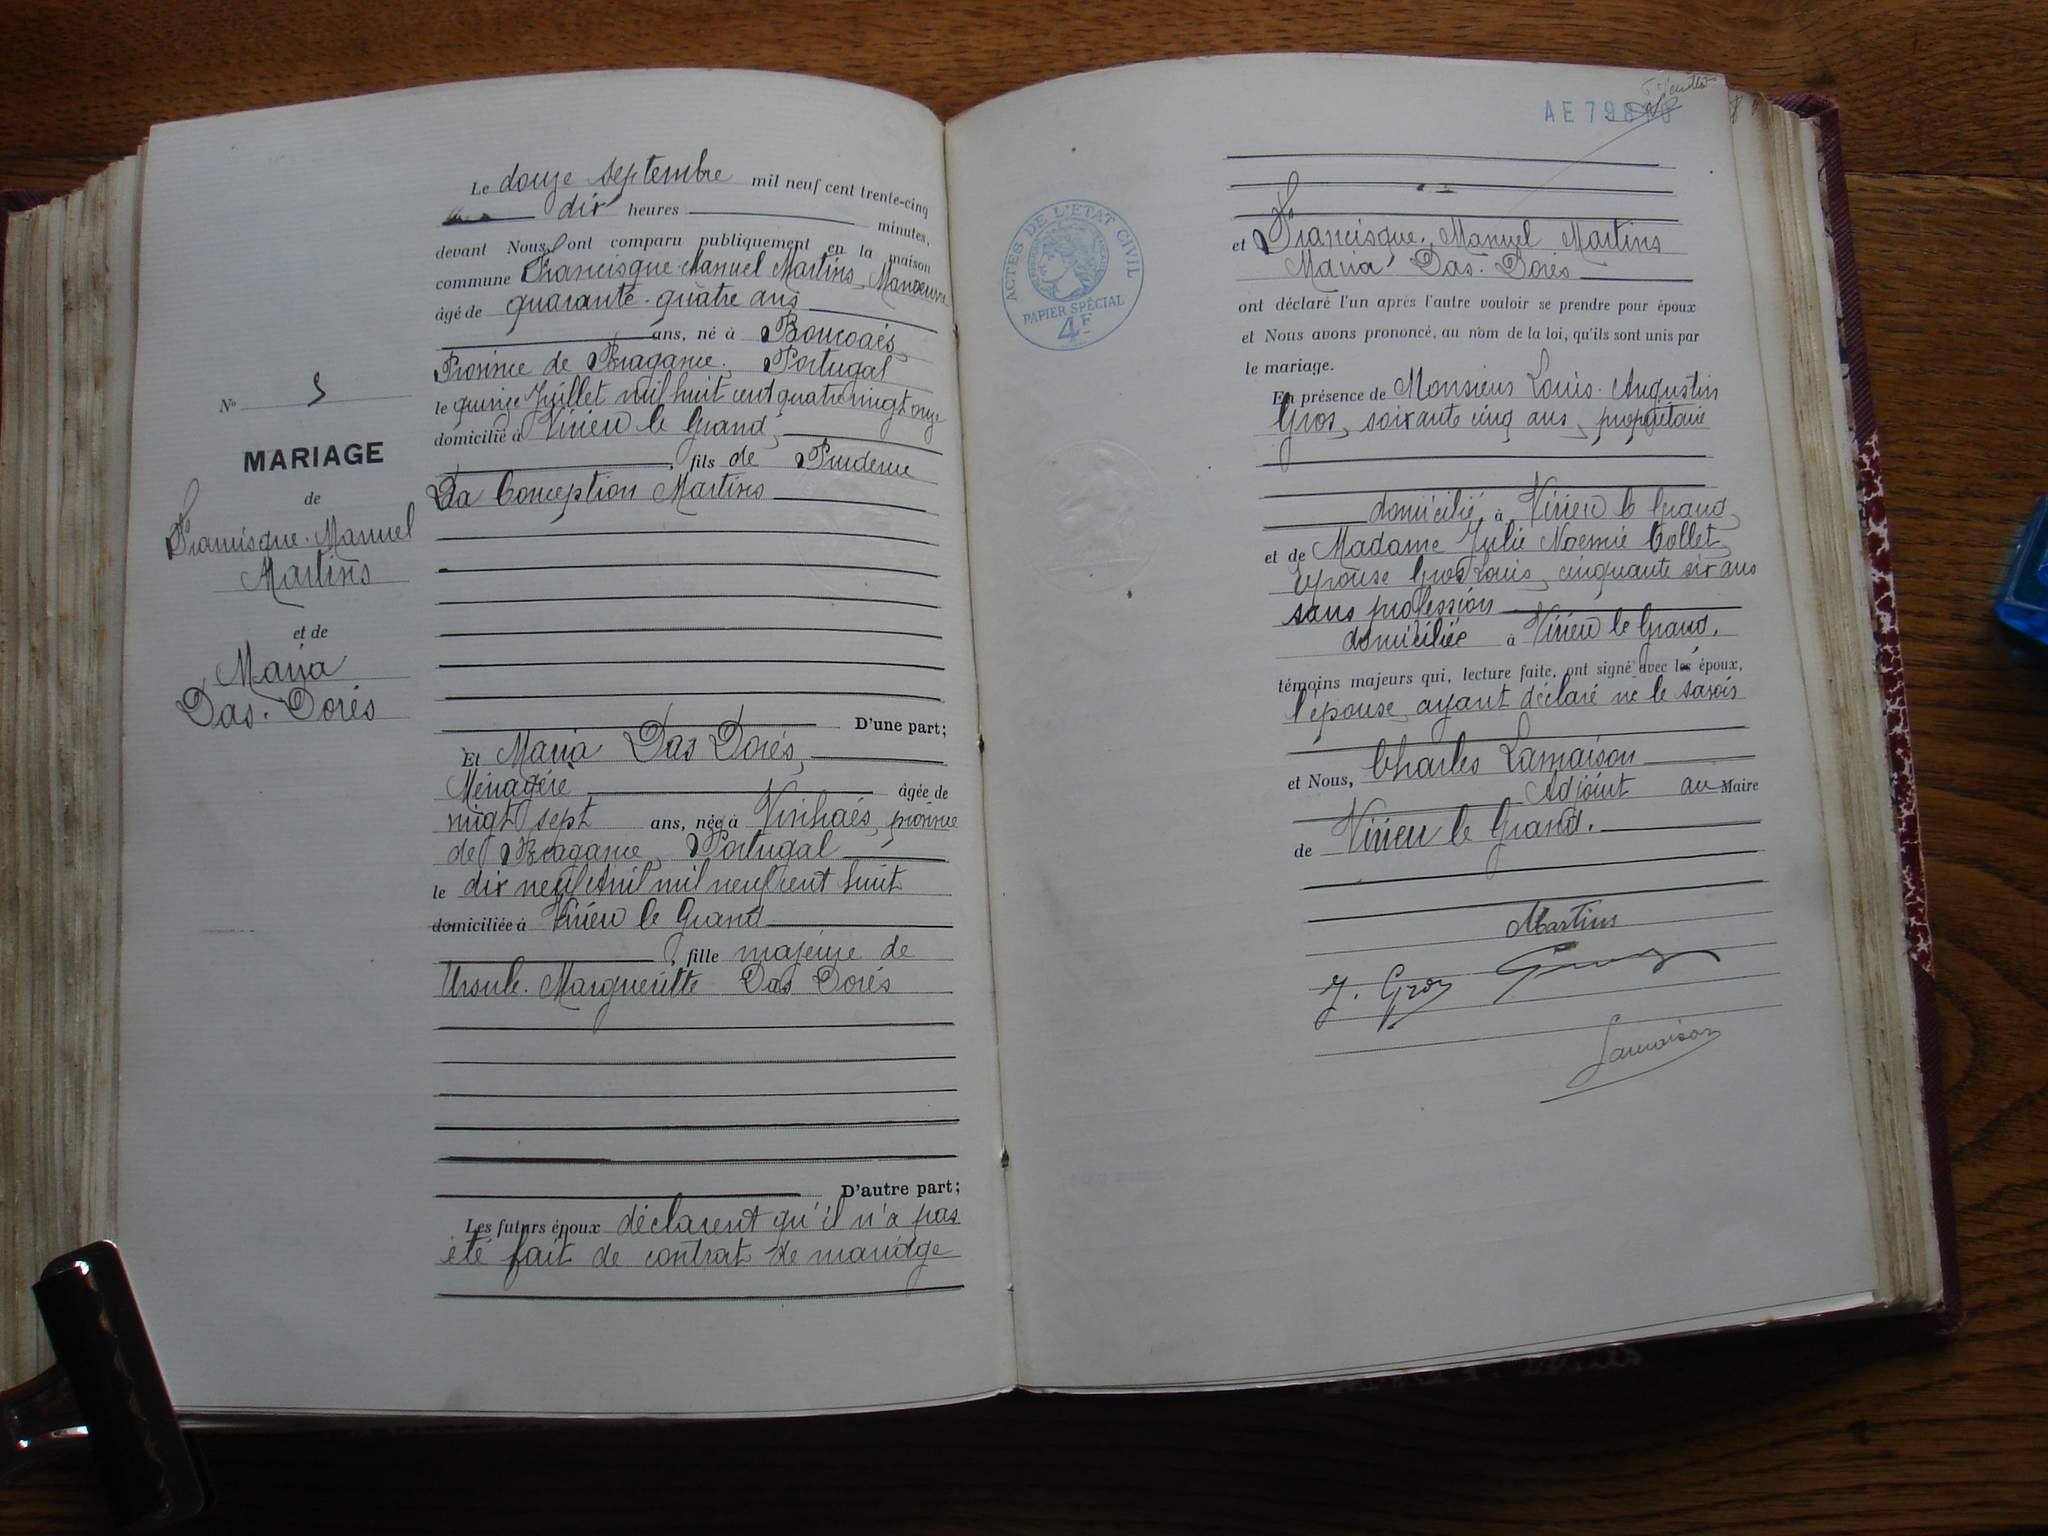 Le douze Septembre mil neuf cent trente-cinq
dix heures minutes,
devant Nous, ont comparu publiquement en la maison
commune Francisque Manuel Martins, Manoeuvre
âgé de quarante-quatre ans
ans, né à
Province de Bragance, Portugal
le quinze Juillet mil huit cent quatre vingt onze
domicilié à Virieu le Grand,
, fils de Prudence
Da Conception Martins
N° 5
MARIAGE
de
Francisque-Manuel
Martins
et de
Maria
Das-Dorés
D'une part;
Et Maria Das Dorés,
Ménagère âgée de
vingt sept ans, née à province
de Bragance, Portugal
le dix neuf Avril mil neuf cent huit
domiciliée à Virieu le Grand
, fille majeure de
Ursule-Margueritte Das Dorés
D'autre part;
Les futurs époux déclarent qu'il n'a pas
été fait de contrat de mariage
AE
ACTES DE L'ETAT CIVIL
PAPIER SPÉCIAL
4F
et Francisque-Manuel Martins
Maria Das-Dorés
ont déclaré l'un après l'autre vouloir se prendre pour époux
et Nous avons prononcé, au nom de la loi, qu'ils sont unis par
le mariage.
En présence de Monsieur Louis-Augustin
Gros, soixante cinq ans, propriétaire
domicilié à Virieu le Grand,
et de Madame Julie Noémie Collet,
Epouse Gros Louis, cinquante six ans
sans profession
domiciliée à Virieu le Grand,
témoins majeurs qui, lecture faite, ont signé avec les époux,
l'épouse ayant déclaré ne le savoir
et Nous, Charles Lamaison
Adjoint au Maire
de Virieu le Grand.
Martins
J. Gros Gros
Lamaison